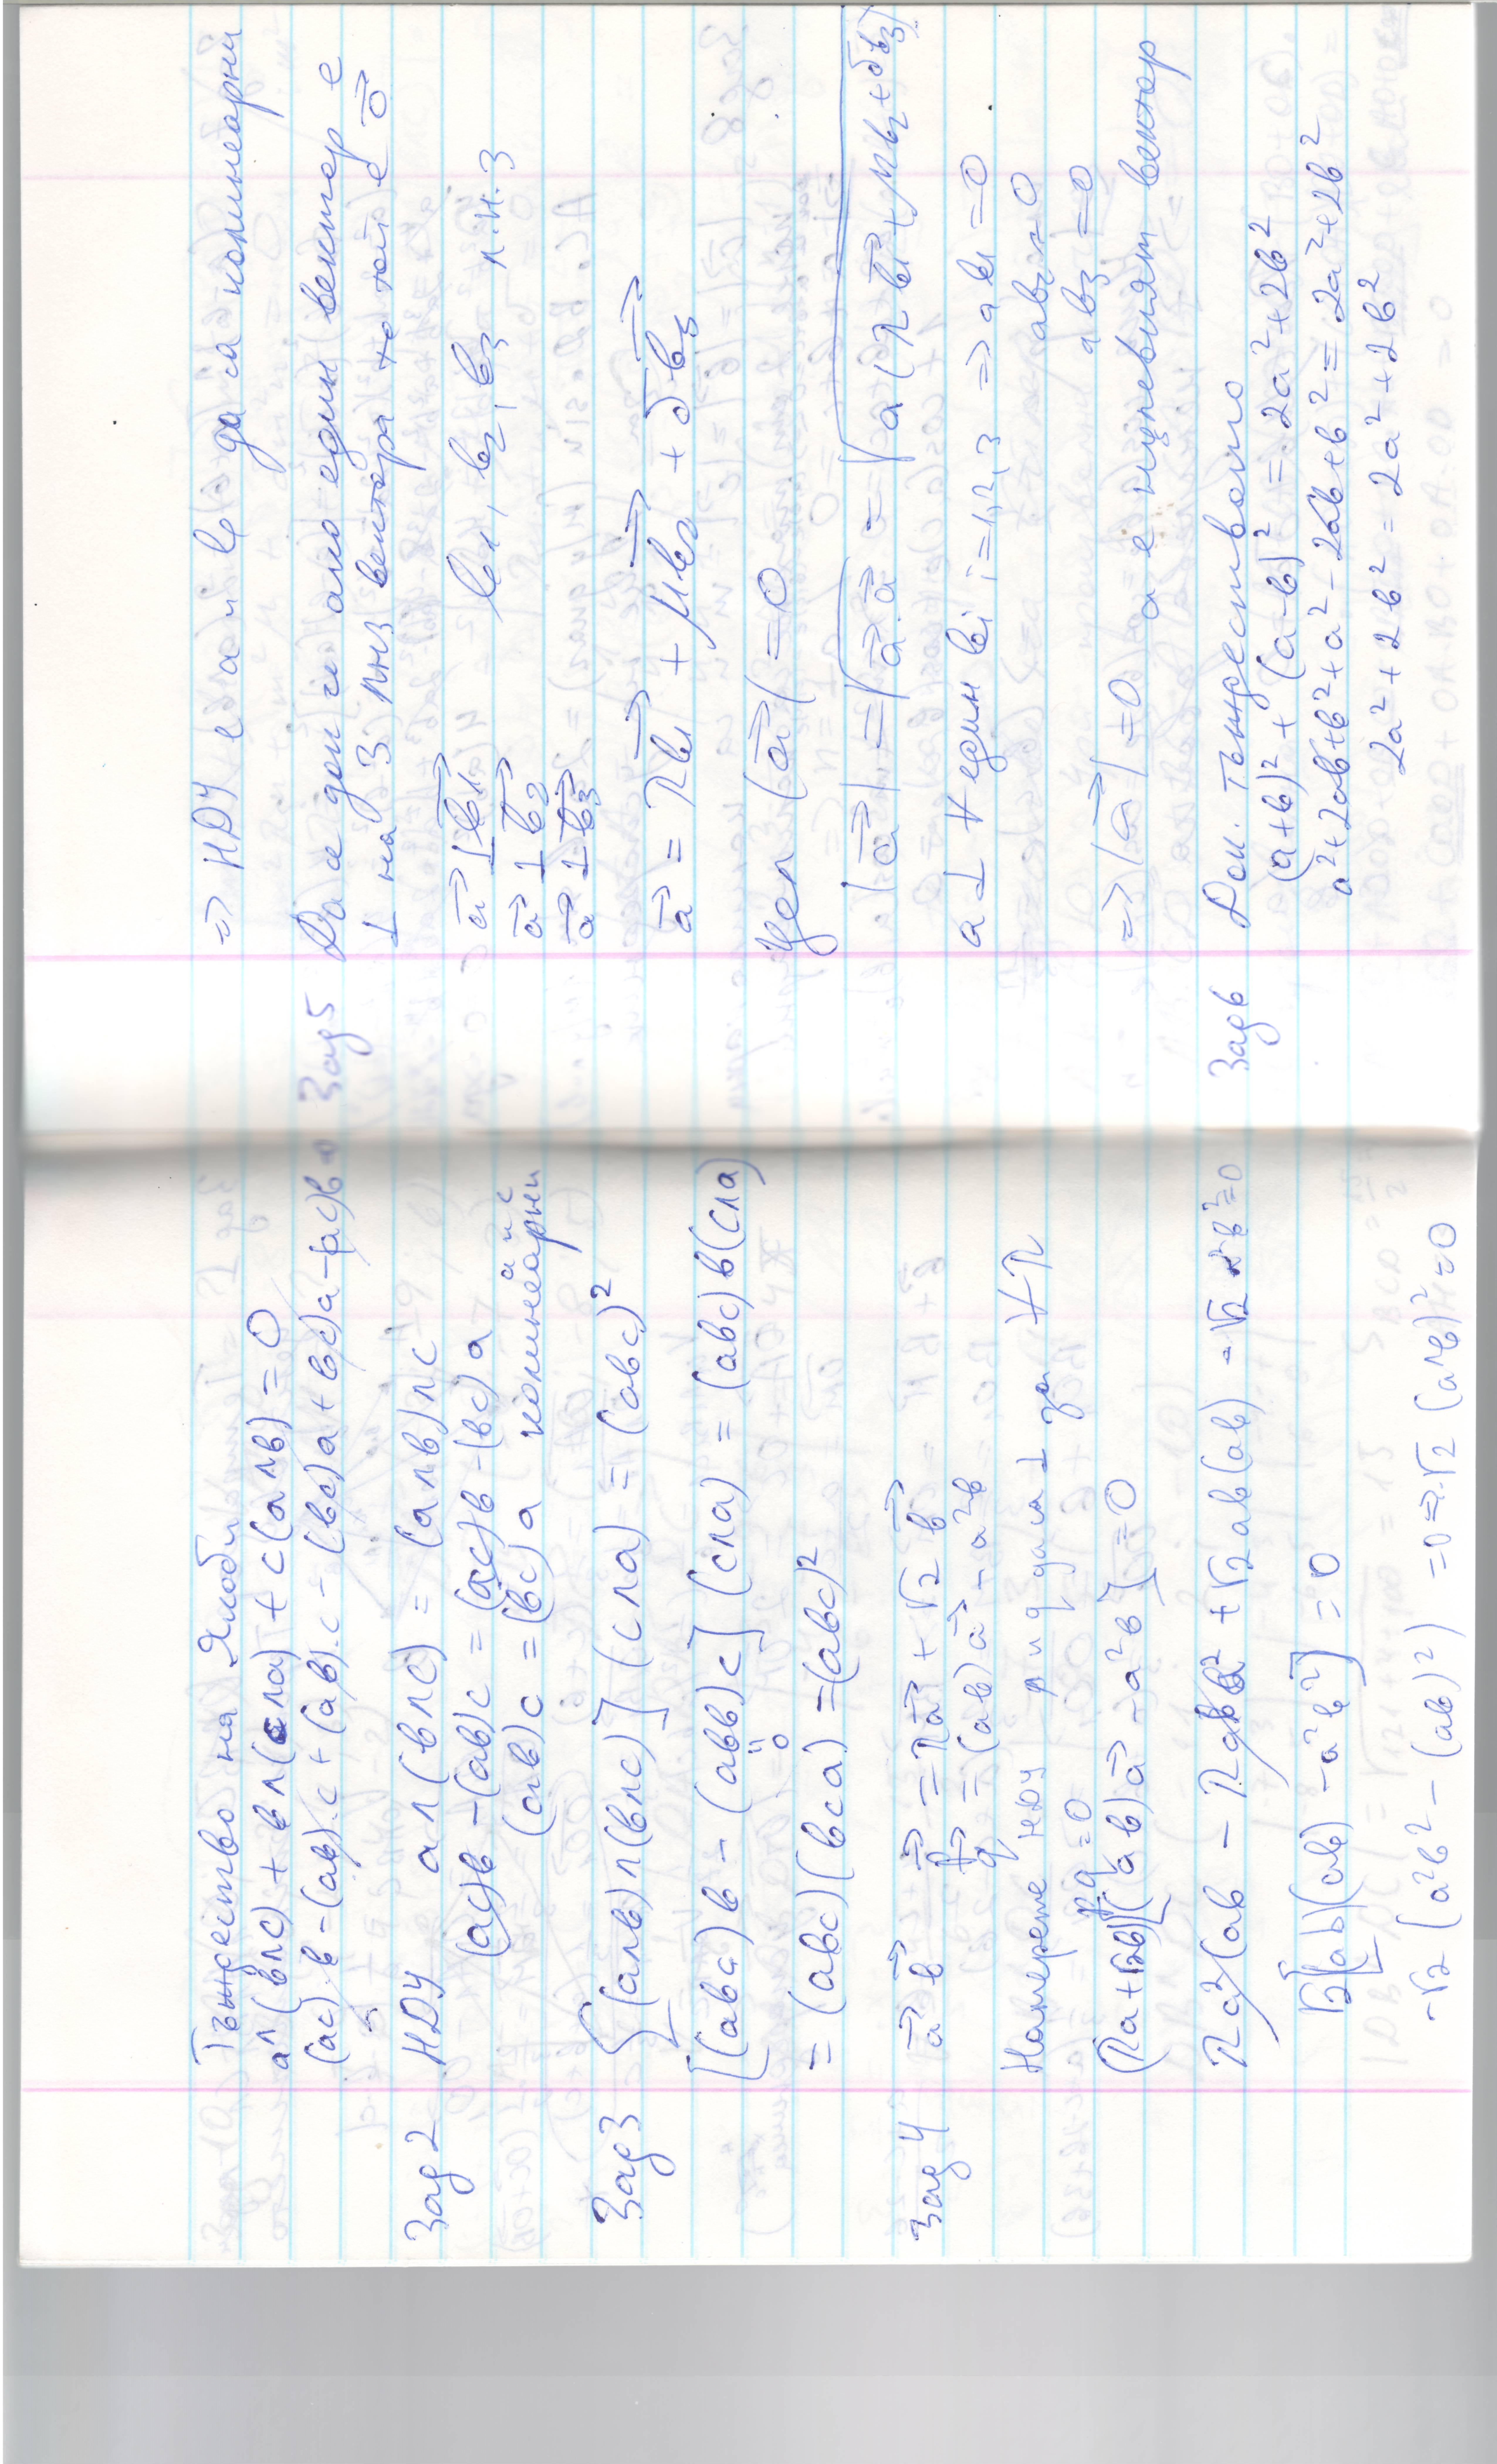 Тъждество на Якоби
a∧(b∧c) + b∧(c∧a) + c(a∧b) = 0
(ac).b-(ab).c + (ab).c - (bc)a + (bc)a-(ac)b=
Зад 2 НДУ a∧(b∧c) = (a∧b)∧c
(ac)b-(ab)c = (ac)b-(bc)a
(ab)c = (bc)a a и c
колинеарни
Зад 3 {(a∧b)∧(b∧c)}(c∧a) = (abc)²
[(abc)b - (abb)c](c∧a) = (abc)b(c∧a)
0
= (abc)(bca) = (abc)²
Зад 4 a→ b→ p→ = λa→ + √2 b→
q→ = (ab)a→ - a²b
Намерете НДУ p и q да са ⊥ за ∀λ
p.q=0
(λa+√2b)[(ab)a→ - a²b] = 0
λa²(ab - λab a² + √2ab(ab) - √2 a²b²=0
√2[(ab)(ab) - a²b²] = 0
-√2(a²b² - (ab)²) = 0 => -√2 (a∧b)² = 0
=> НДУ е a и b да са колинеарни
Зад 5 Да се док. че ако един вектор е
⊥ на 3 лнз вектора то той е 0→
a→ ⊥ b1→ b1, b2, b3 л.н.з
a→ ⊥ b2→
a→ ⊥ b3→
a→ = λb1→ + μb2→ + δb3→
Цел |a→| = 0
|a→| = √a→.a→ = √a(λb1→+μb2+δb3)
a ⊥ ∀ един bi i=1,2,3 => ab1 = 0
ab2 = 0
ab3 = 0
=> |a→| = 0 a е нулевият вектор
Зад 6 Док. тъждеството
(a+b)² + (a-b)² = 2a²+2b²
a²+2ab+b²+a²-2ab+b² = 2a²+2b²
2a²+2b² = 2a²+2b²